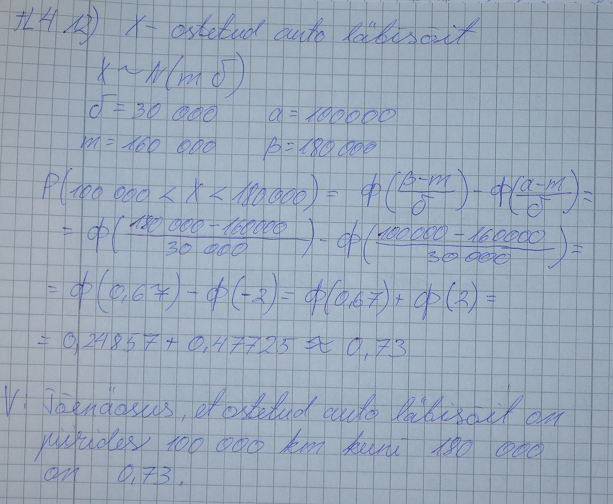 ÜL 4 12) X - ostetud auto läbisõit
X ~ N(m σ)
σ = 30 000 α = 100000
m = 160 000 β = 180000
P(100 000 < X < 180000) = Φ(β-m/σ) - Φ(α-m/σ) =
= Φ(180 000 - 160000/30 000) - Φ(100000 - 160000/30000) =
= Φ(0,67) - Φ(-2) = Φ(0,67) + Φ(2) =
= 0,24857 + 0,47725 ≈ 0,73
V: Tõenäosus, et ostetud auto läbisõit on
piirides 100 000 km kuni 180 000
on 0,73.